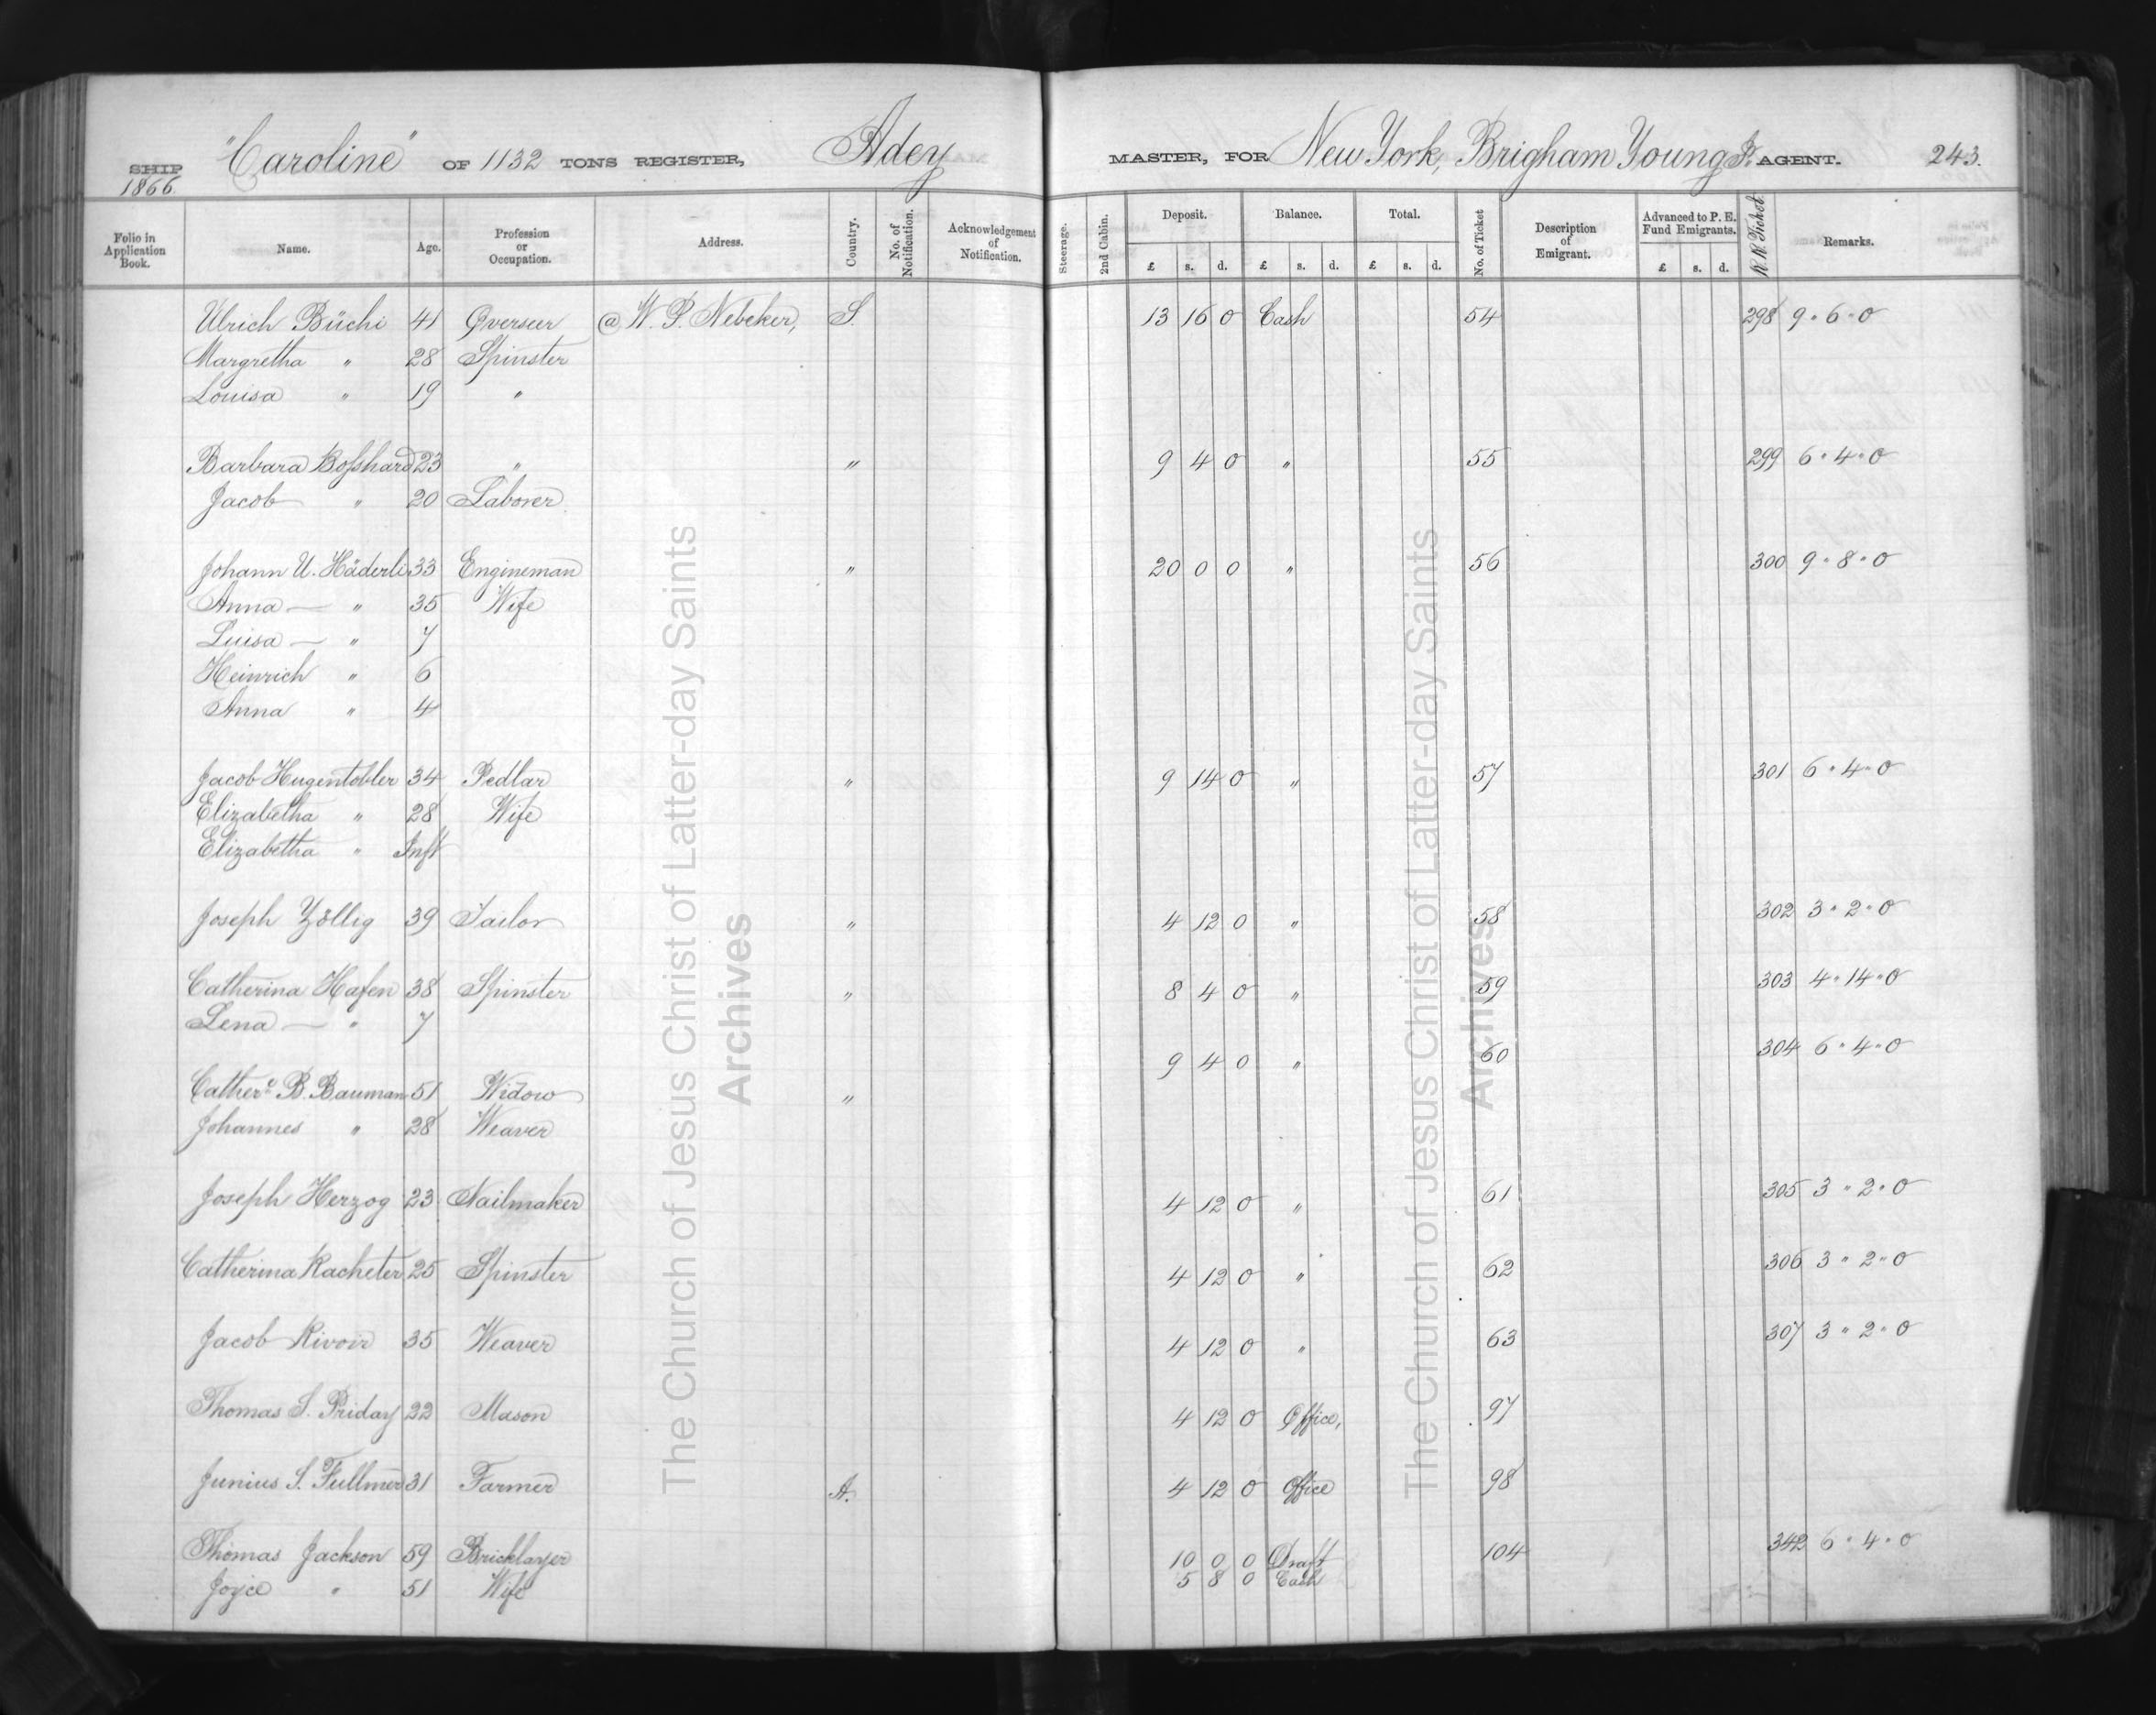 SHIP "Caroline" OF 1132 TONS REGISTER, Adey MASTER, FOR New York, Brigham Young Jr. AGENT. 243.
1866
Folio in Application Book. Name. Age. Profession or Occupation. Address. Country. No. of Notification. Acknowledgement of Notification. Steerage. 2nd Cabin. Deposit. £ s. d. Balance. £ s. d. Total. £ s. d. No. of Ticket Description of Emigrant. Advanced to P. E. Fund Emigrants. £ s. d. R. R. Ticket Remarks.
Ulrich Büchi 41 Overseer @ W. P. Nebeker, S. 13 16 0 Cash 54 298 9 " 6 " 0
Margretha " 28 Spinster
Louisa " 19 "
Barbara Boſshard 23 " " 9 4 0 " 55 299 6 " 4 " 0
Jacob " 20 Laborer
Johann U. Häderli 33 Engineman " 20 0 0 " 56 300 9 " 8 " 0
Anna — " 35 Wife
Luisa — " 7
Heinrich " 6
Anna " 4
Jacob Hugentobler 34 Pedlar " 9 14 0 " 57 301 6 " 4 " 0
Elizabetha " 28 Wife
Elizabetha " Inft
Joseph Zöllig 39 Tailor " 4 12 0 " 58 302 3 " 2 " 0
Catherina Hafen 38 Spinster " 8 4 0 " 59 303 4 " 14 " 0
Lena — " 7
9 4 0 " 60 304 6 " 4 " 0
Cather.e B. Bauman 51 Widow "
Johannes " 28 Weaver
Joseph Herzog 23 Nailmaker 4 12 0 " 61 305 3 " 2 " 0
Catherina Racheter 25 Spinster 4 12 0 " 62 306 3 " 2 " 0
Jacob Rivoir 35 Weaver 4 12 0 " 63 307 3 " 2 " 0
Thomas S. Priday 22 Mason 4 12 0 Office, 97
Junius S. Fullmer 31 Farmer A. 4 12 0 Office 98
Thomas Jackson 59 Bricklayer 10 0 0 Draft 104 342 6 " 4 " 0
Joyce " 51 Wife 5 8 0 Cash
The Church of Jesus Christ of Latter-day Saints
Archives
The Church of Jesus Christ of Latter-day Saints
Archives